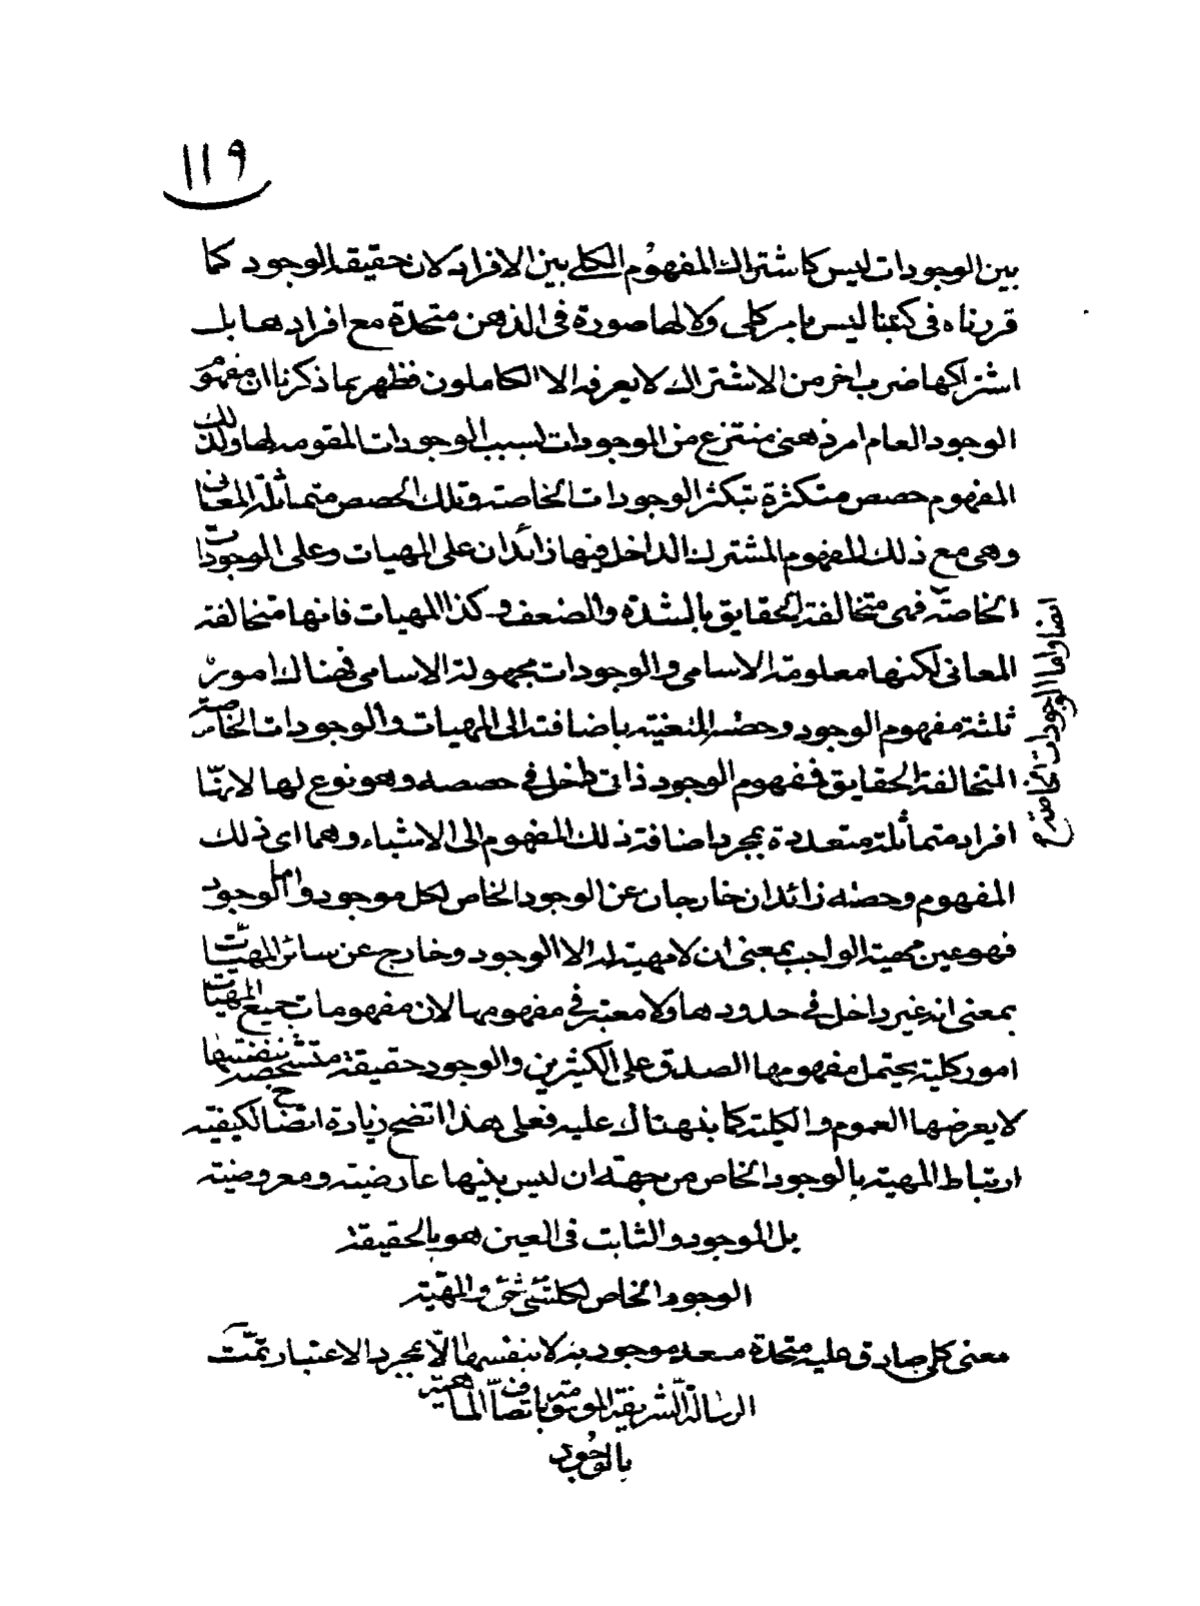 ١١٩
بين الوجودات ليس كاشتراك المفهوم الكلى بين الافراد لان حقيقة الوجود كما
قررناه فى كتبنا ليس بامر كلى ولا لها صورة فى الذهن متحدة مع افرادها بل
اشتراكها ضرب اخر من الاشتراك لا يعرفه الا الكاملون فظهر بما ذكرنا ان مفهوم
الوجود العام امر ذهنى منتزع من الموجودات بسبب الوجودات المقومة لها ولذلك
المفهوم حصص متكثرة بتكثر الوجودات الخاصة وتلك الحصص متماثلة المعانى
وهى مع ذلك المفهوم المشترك الداخل فيها زائدان على المهيات وعلى الوجودات
الخاصة فهى متخالفة الحقايق بالشدة والضعف وكذا المهيات فانها متخالفة
المعانى لكنها معلومة الاسامى والوجودات مجهولة الاسامى فهناك امور
ثلثة مفهوم الوجود وحصه المتعينة باضافته الى المهيات والوجودات الخاصة
المتخالفة الحقايق فمفهوم الوجود ذاتى داخل فى حصصه وهو نوع لها لانها
افراد متماثلة متعددة بمجرد اضافة ذلك المفهوم الى الاشياء وهما اى ذلك
المفهوم وحصته زائدان خارجان عن الوجود الخاص لكل موجود واما الوجود
فهو عين مهية الواجب بمعنى ان لا مهية له الا الوجود وخارج عن سائر المهيات
بمعنى انه غير داخل فى حدودها ولا معتبر فى مفهومها لان مفهومات جميع المهيات
امور كلية يحتمل مفهومها الصدق على الكثيرين والوجود حقيقة متشخصة بنفسها
لا يعرضها العموم والكلية كما نبهناك عليه فعلى هذا اتضح زيادة اتضاح لكيفية
ارتباط المهية بالوجود الخاص من جهة ان ليس بينها عارضية ومعروضية
بل الموجود والثابت فى العين هو بالحقيقة
الوجود الخاص لكل شئ شئ والمهية
معنى كلى صادق عليه متحدة معه موجود به لا بنفسها الا بمجرد الاعتبار تمت
الرسالة الشريفة الموسومة باتصاف الماهية
بالوجود
ايضا واما الوجودات الخاصة ح